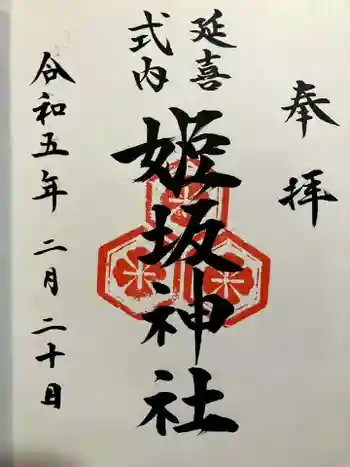 奉拝
延喜
式内
姫坂神社
令和五年二月二十日